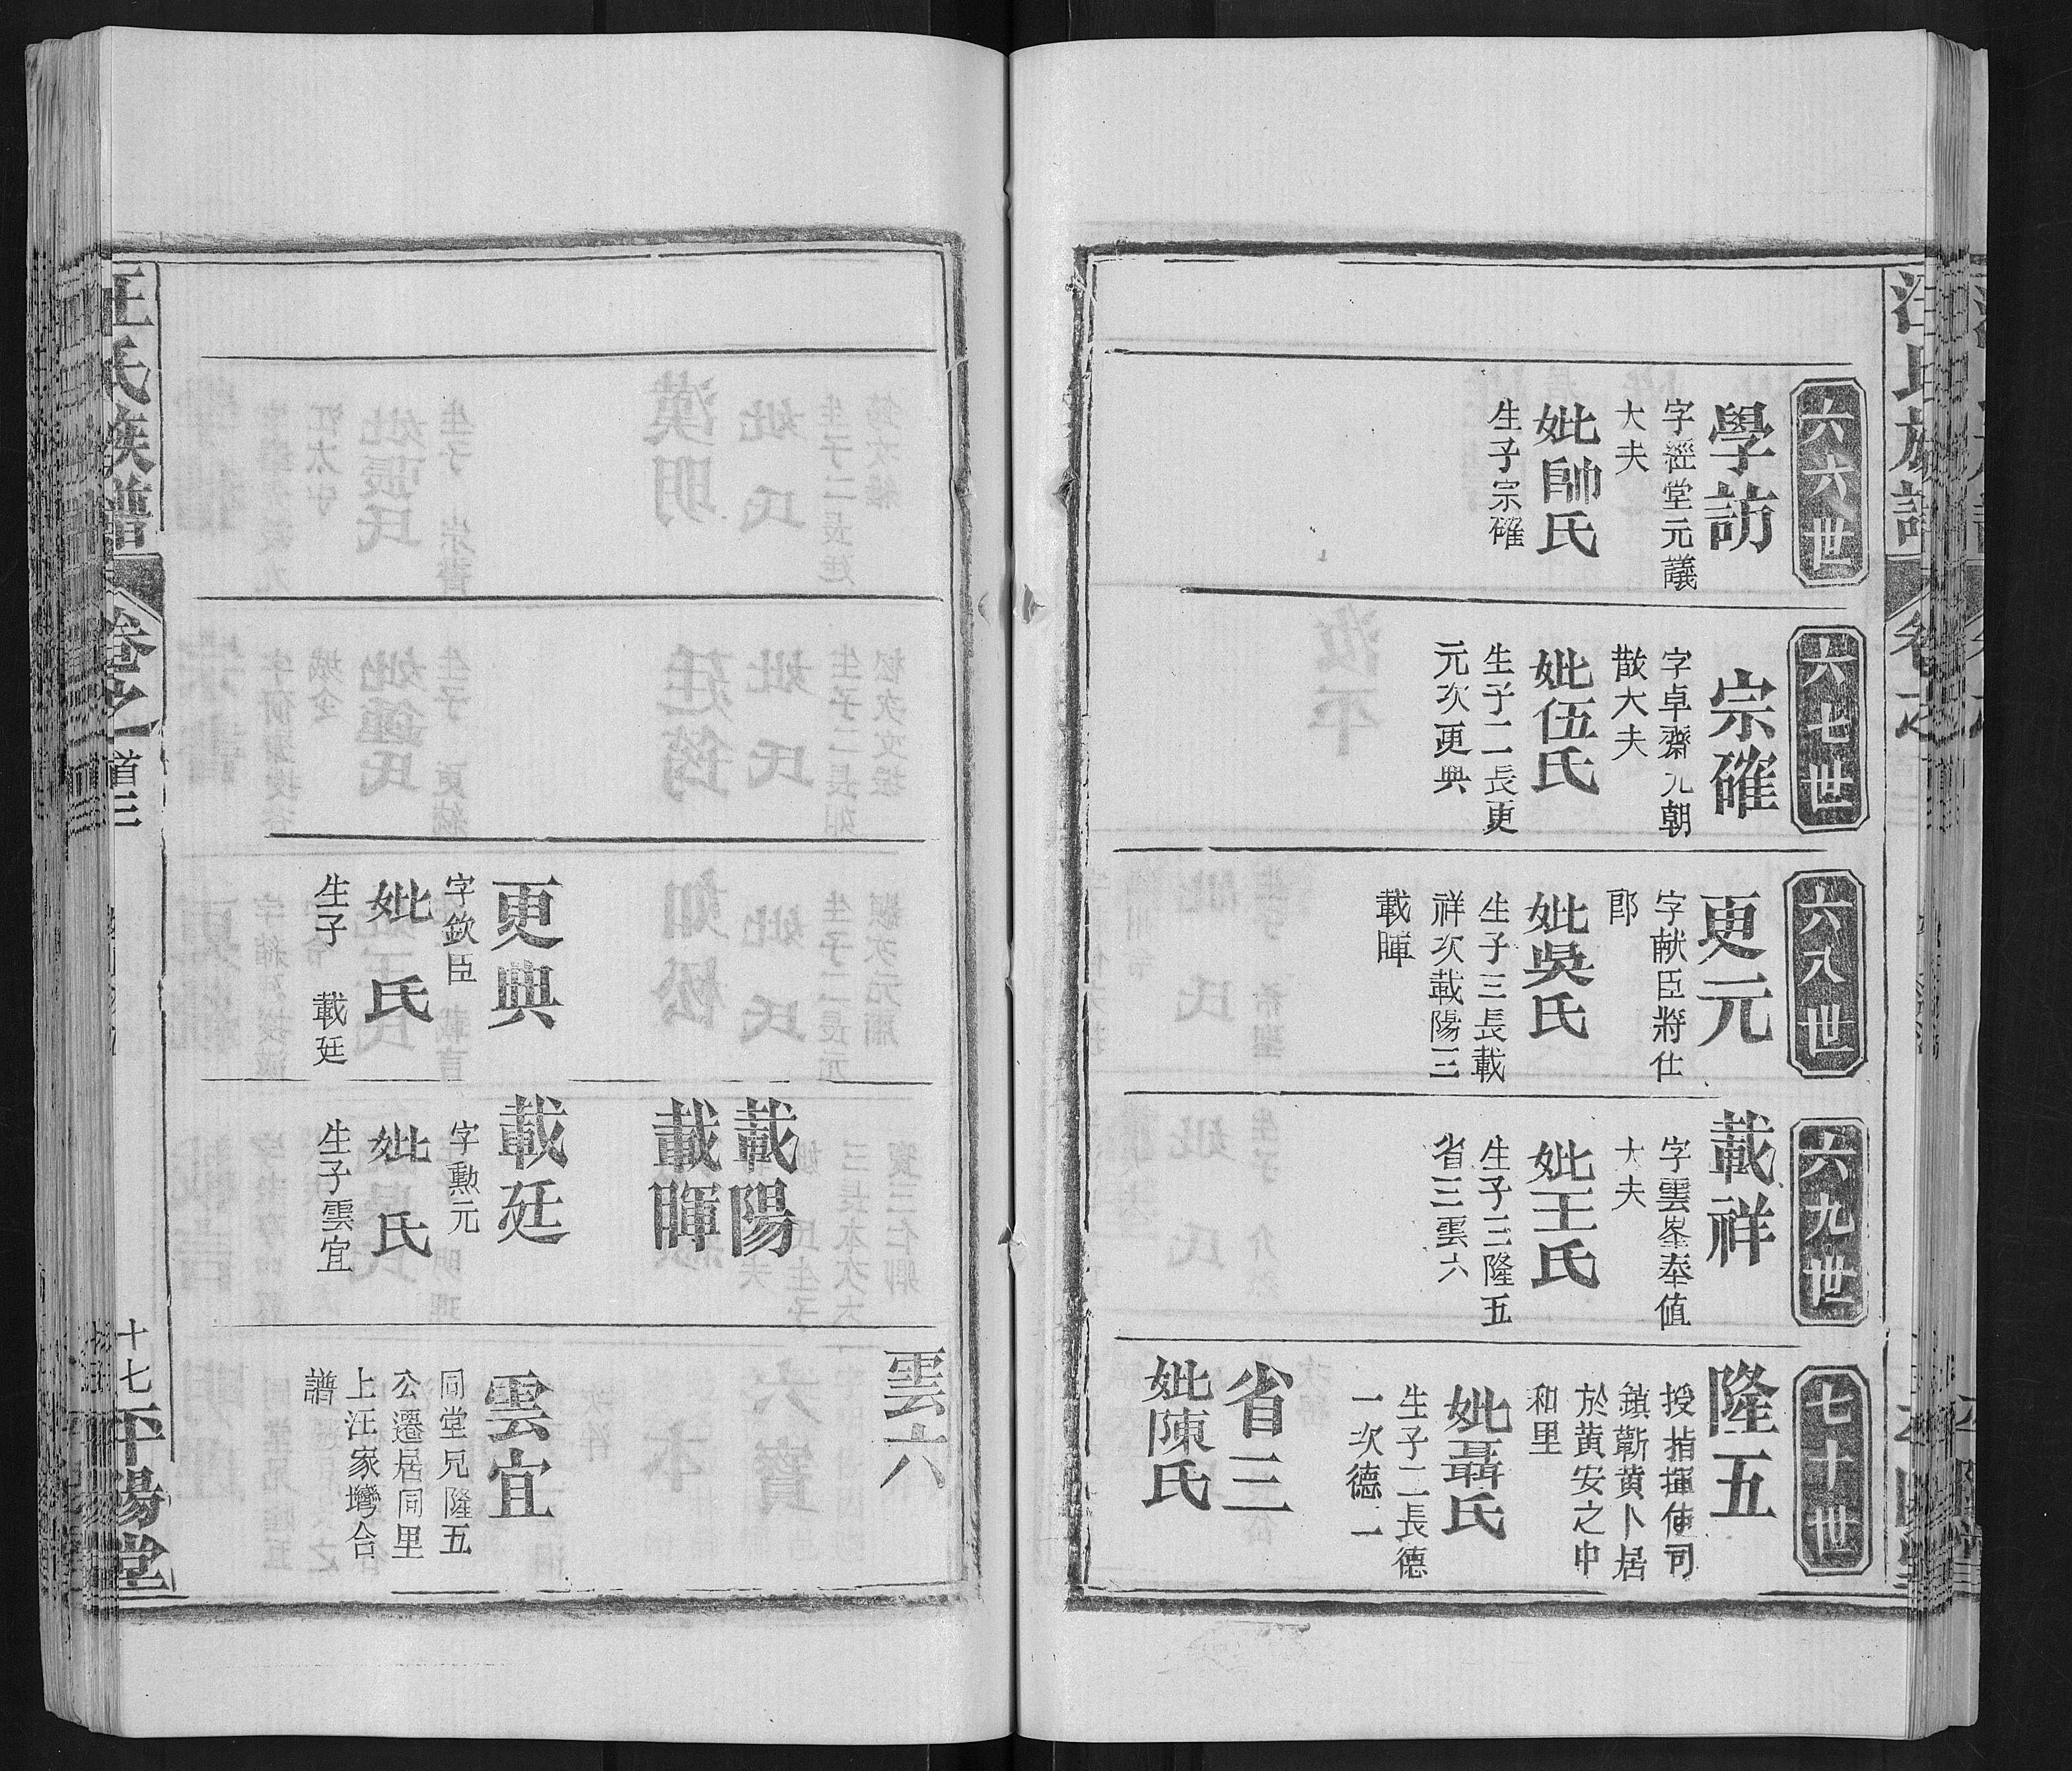 六六世
學訪
字經堂元議
大夫
妣帥氏
生子宗確
六七世
宗確
字卓齋元朝
散大夫
妣伍氏
生子二長更
元次更典
六八世
更元
字献臣將仕
郎
妣吳氏
生子三長載
祥次載陽三
載暉
六九世
載祥
字雲峯奉值
大夫
妣王氏
生子三隆五
省三雲六
七十世
隆五
授指揮使司
鎮蘄黄卜居
於黄安之中
和里
妣聶氏
生子二長德
一次德二
省三
妣陳氏
更典
字欽臣
妣 氏
生子 載廷
載陽
載暉
載廷
字勳元
妣 氏
生子雲宜
雲六
雲宜
同堂兄隆五
公遷居同里
上汪家塆合
譜
汪氏族譜
卷之一
首三
十七
平陽堂